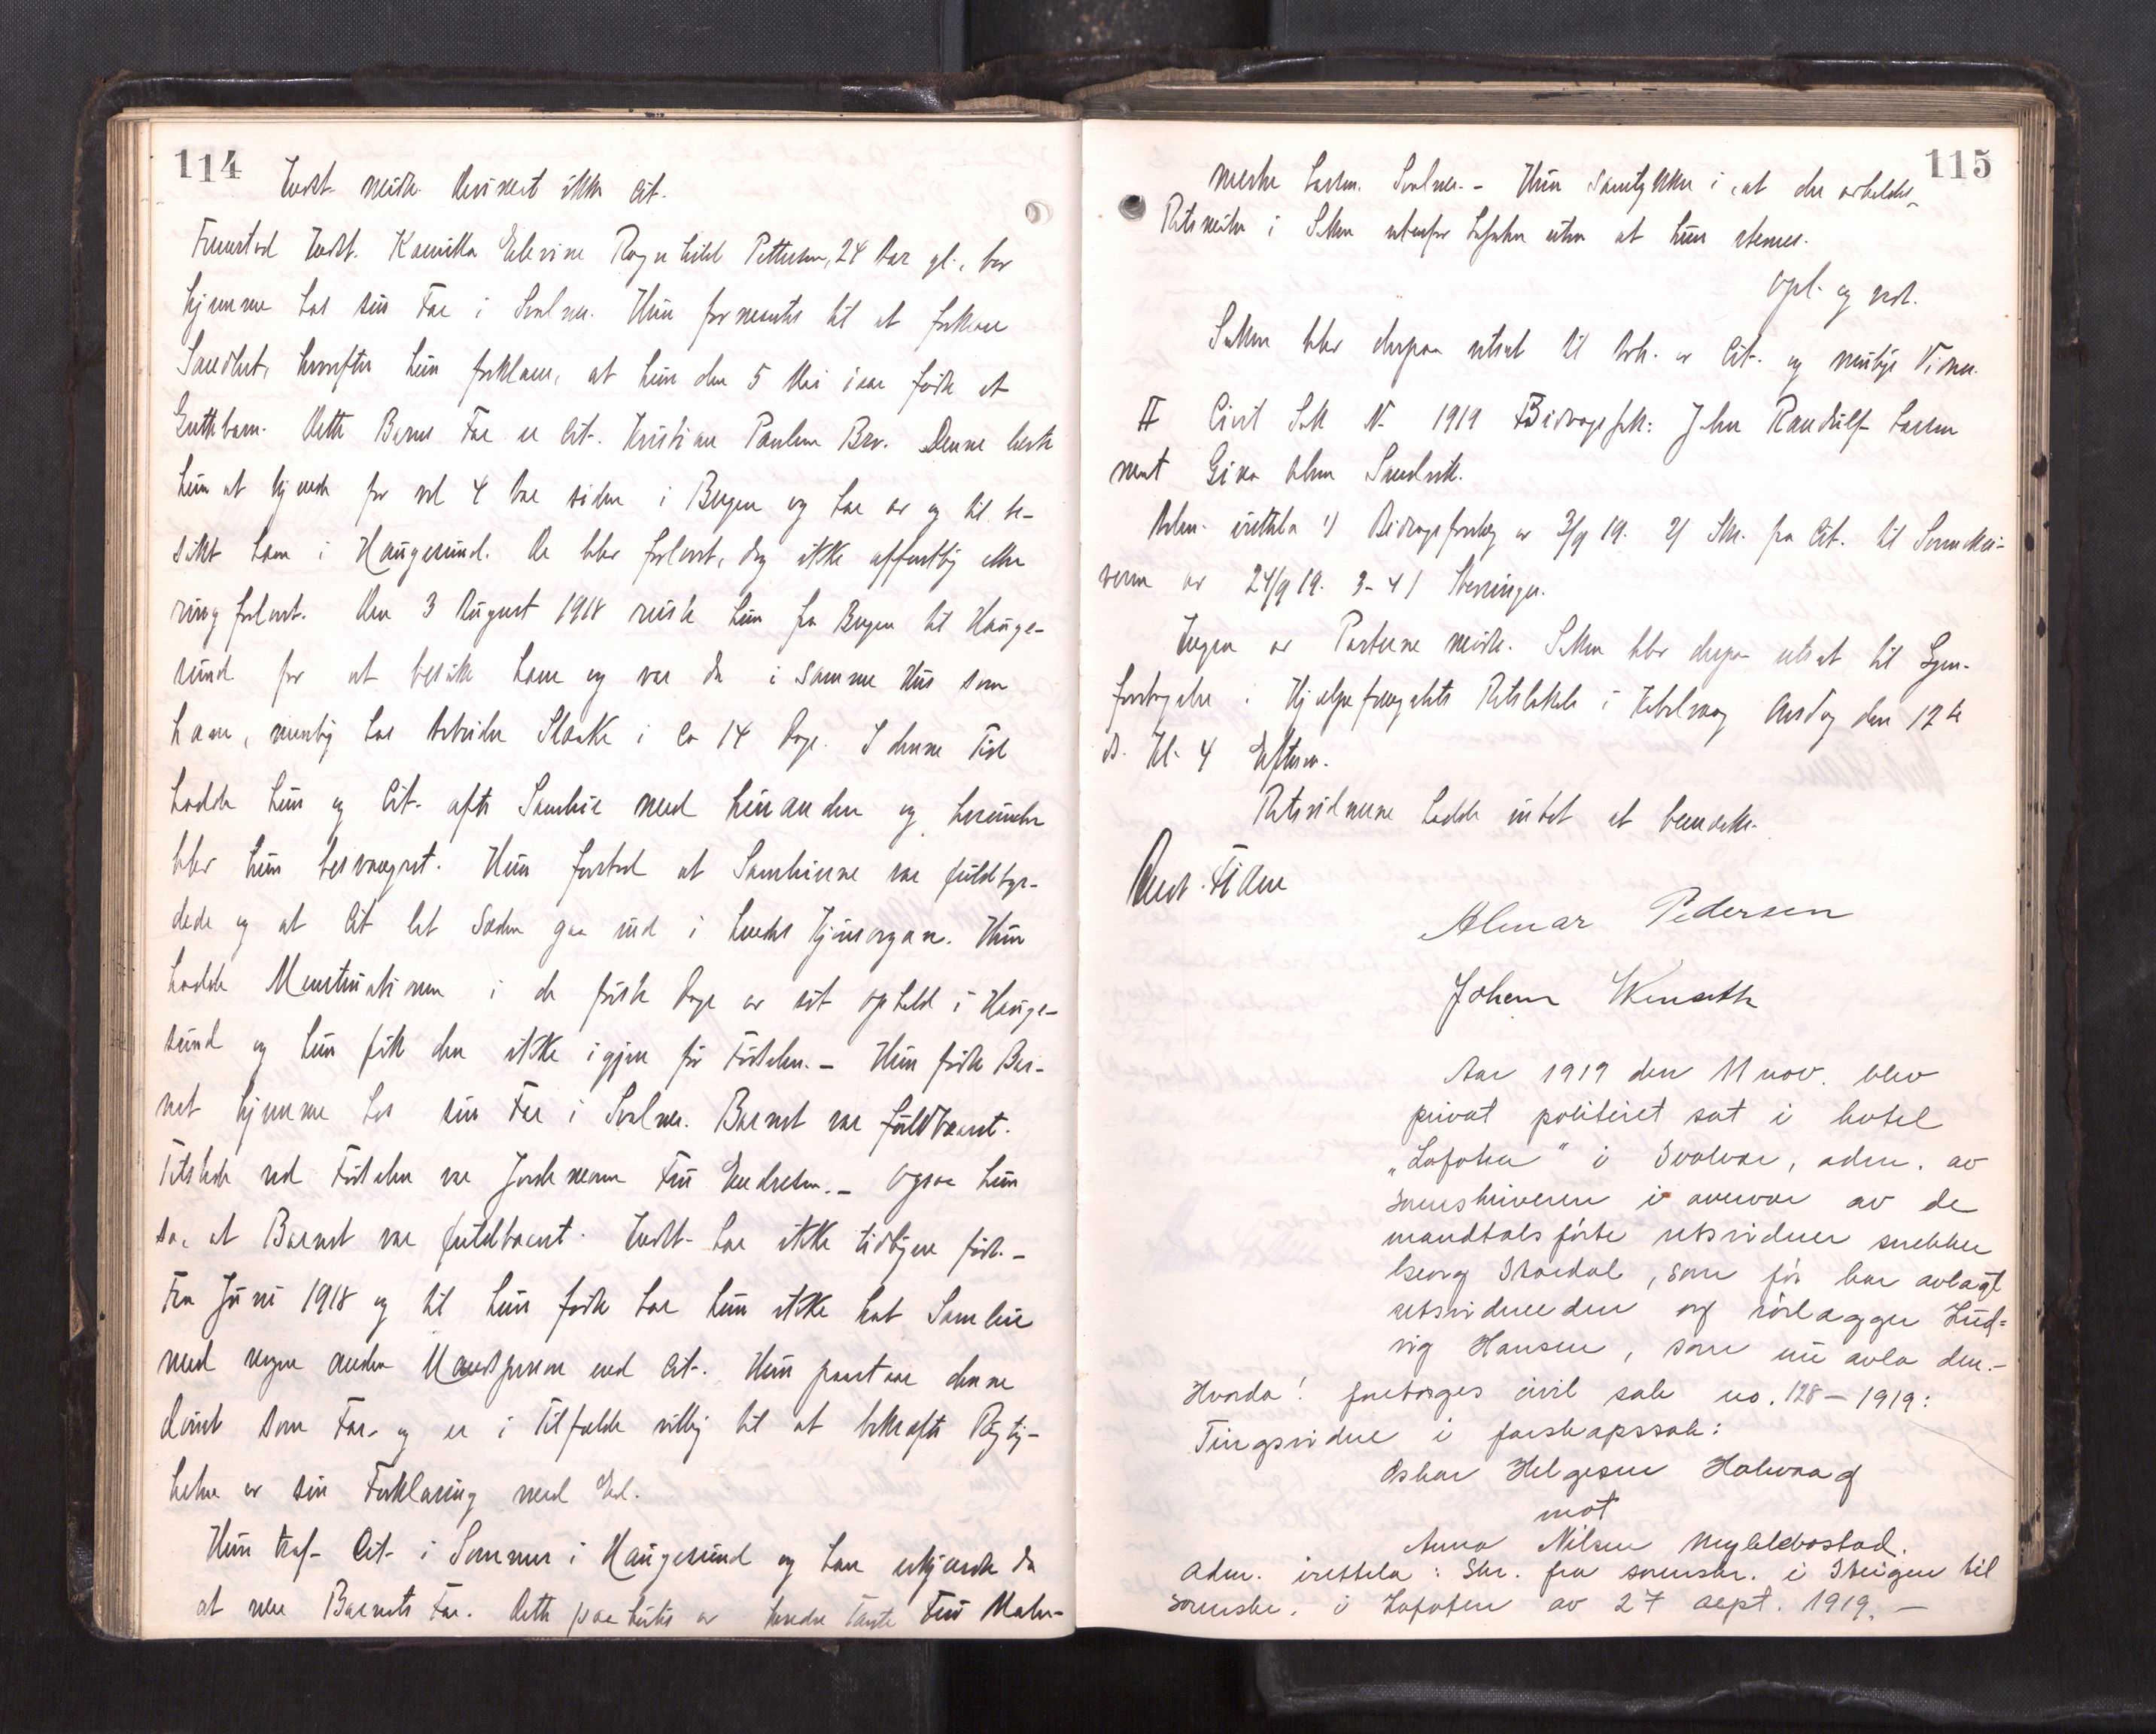 114
Indst. møtte derimot ikke Cit.
Fremstod Indst. Kamilla Elevine Ragnhild Pettersen, 24 Aar gl., bor
hjemme hos sin Far i Svolvær. Hun formantes til at forklare
Sandhet, hvorefter hun forklarer, at hun den 5 Mai iaar fødte et
Guttebarn. Dette Barns Far er Cit. Kristian Paulsen Bær. Denne lærte
hun at kjende for vel 4 Aar siden i Bergen og har og til be-
søkt ham i Haugesund. De blev forlovet, dog ikke offentlig eller
ringforlovet. Den 3 August 1918 reiste hun fra Bergen til Hauge-
sund for at besøke ham og var da i samme Hus som
ham, nemlig hos Arbeider i ca 14 Dage. I denne Tid
hadde hun og Cit. ofte Samleie med hinanden og herunder
blev hun besvangret. Hun forstod at Samleiene var fuldbyr-
dede og at Cit. lot Sæden gaa ind i hendes Kjønsorgan. Hun
hadde Menstruationen i de første Dage av sit Ophold i Hauge-
sund og hun fik den ikke igjen før Fødselen. – Hun fødte Bar-
net hjemme hos sin Far i Svolvær. Barnet var fuldbaaret.
Tilstede ved Fødselen var Jordemoren Fru Endresen. – Ogsaa hun
sa, at Barnet var fuldbaaret. Indst. har ikke tidligere født. –
Fra Juni 1918 og til hun fødte har hun ikke hat Samleie
med nogen anden Mandsperson end Cit. Hun paastaar denne
dømt som Far og er i Tilfælde villig til at bekræfte Rigtig-
heten av sin Forklaring med Ed.
Hun traf Cit. i Sommer i Haugesund og han erkjendte da
at være Barnets Far. Dette paahørtes av hendes Tante Fru
115
Larsen, Svolvær. – Hun samtykker i, at der avholdes
Retsmøter i Saken utenfor Lofoten uten at hun stevnes.
Opl. og vedt.
Saken blev derpaa utsat til Avh. av Cit. og mulige Vidner.
II Civil Sak N 1919 Bidragssak: Johan Randulf Larsen
mot Gina Sandvik.
Adm. irettela 1) Bidragsforelæg av 3/9 19. 2) Skr. fra Cit. til Sorenskri-
veren av 24/9 19. 3-4) Stevninger.
Ingen av Parterne møtte. Saken blev derpaa utsat til Gjen-
foretagelse i Hjælpefængslets Retslokale i Kabelvaag Onsdag den 12te
ds. Kl. 4 Efterm.
Retsvidnerne hadde intet at bemerke.
Almar Pedersen
Johan
Aar 1919 den 11 nov. blev
privat politiret sat i hotel
„Lofoten" i Svolvær, adm. av
sorenskriveren i overvær av de
mandtalsførte retsvidner snekker
Georg Skardal, som før har avlagt
retsvidneeden og rørlægger Lud=
vig Hansen, som nu avla den. –
Hvorda! foretages civil sak no. 128 – 1919:
Tingsvidne i farskapssak:
Oskar Helgesen Holvaag
mot
Anna Nilsen Myklebostad.
Adm. irettela: Skr. fra sorenskr. i Steigen til
sorenskr. i Lofoten av 27 sept. 1919. –